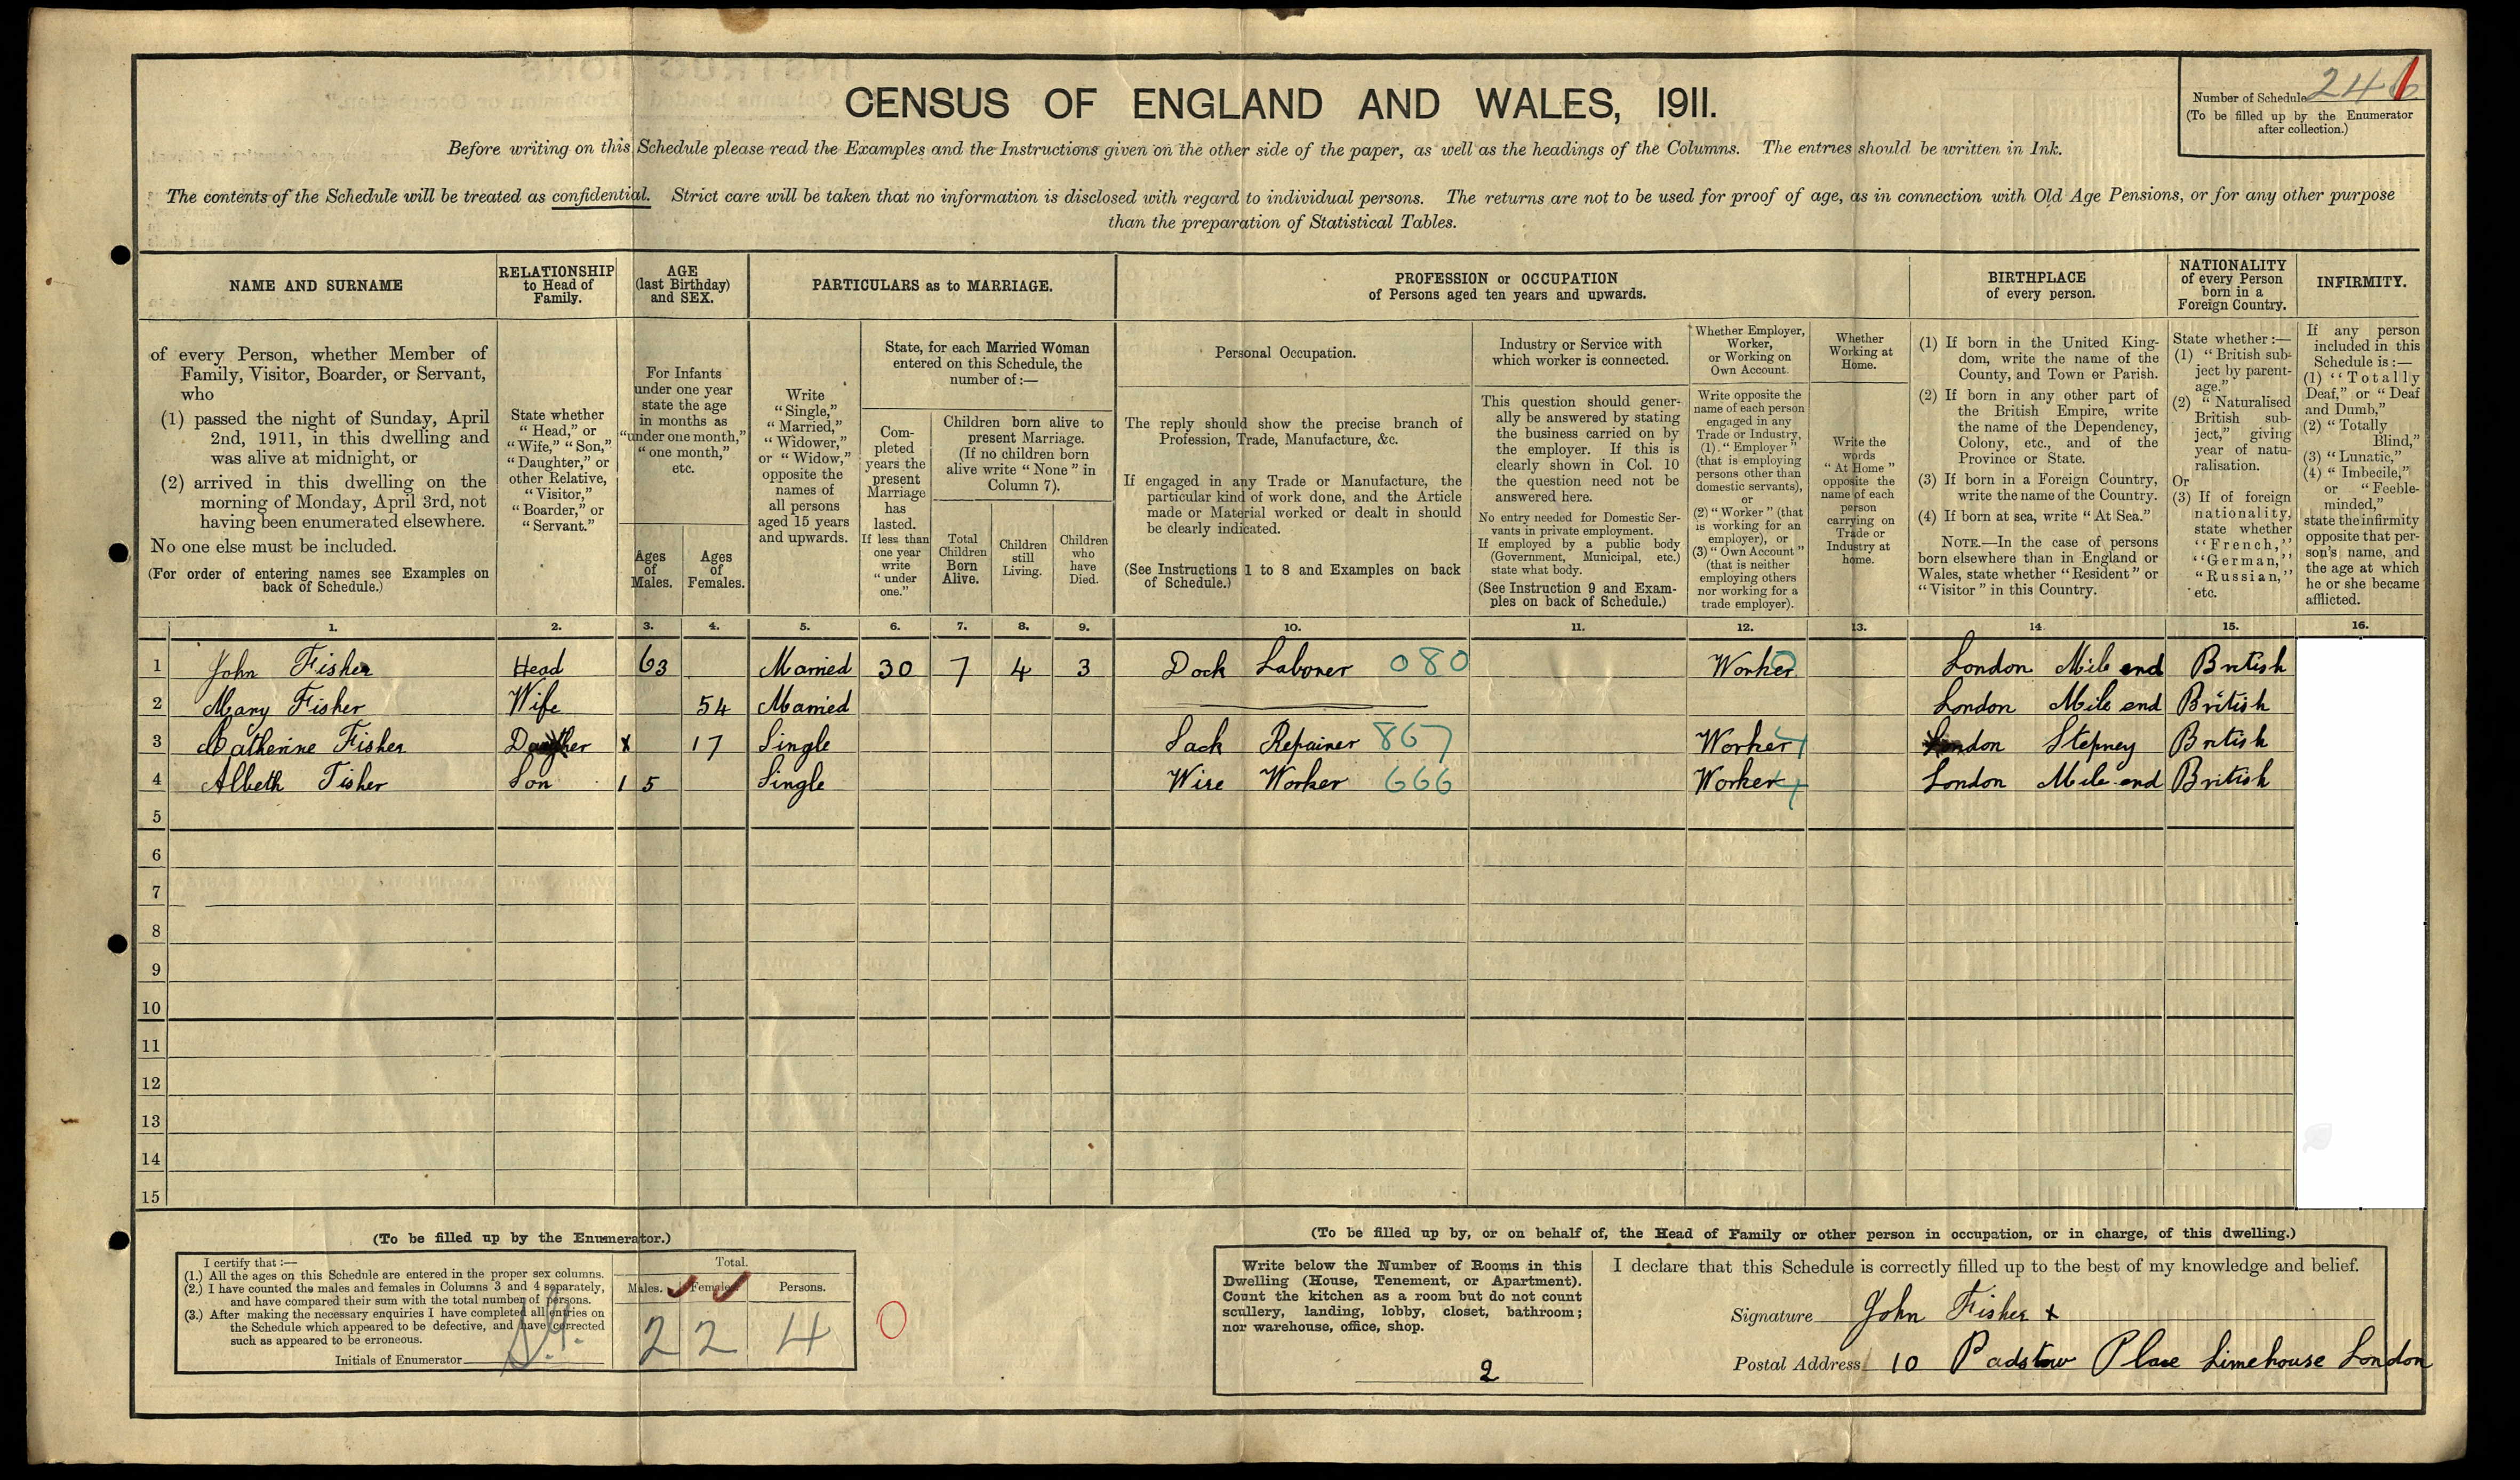 CENSUS OF ENGLAND AND WALES, 1911.
Number of Schedule 246
(To be filled up by the Enumerator
after collection.)
Before writing on this Schedule please read the Examples and the Instructions given on the other side of the paper, as well as the headings of the Columns. The entries should be written in Ink.
The contents of the Schedule will be treated as confidential. Strict care will be taken that no information is disclosed with regard to individual persons. The returns are not to be used for proof of age, as in connection with Old Age Pensions, or for any other purpose
than the preparation of Statistical Tables.
NAME AND SURNAME
of every Person, whether Member of
Family, Visitor, Boarder, or Servant,
who
(1) passed the night of Sunday, April
2nd, 1911, in this dwelling and
was alive at midnight, or
(2) arrived in this dwelling on the
morning of Monday, April 3rd, not
having been enumerated elsewhere.
No one else must be included.
(For order of entering names see Examples on
back of Schedule.)
RELATIONSHIP
to Head of
Family.
State whether
"Head," or
"Wife," "Son,"
"Daughter," or
other Relative,
"Visitor,"
"Boarder," or
"Servant."
AGE
(last Birthday)
and SEX.
For Infants
under one year
state the age
in months as
"under one month,"
"one month,"
etc.
Ages
of
Males.
Ages
of
Females.
PARTICULARS as to MARRIAGE.
Write
"Single,"
"Married,"
"Widower,"
or "Widow,"
opposite the
names of
all persons
aged 15 years
and upwards.
State, for each Married Woman
entered on this Schedule, the
number of :—
Com-
pleted
years the
present
Marriage
has
lasted.
If less than
one year
write
"under
one."
Children born alive to
present Marriage.
(If no children born
alive write "None" in
Column 7).
Total
Children
Born
Alive.
Children
still
Living.
Children
who
have
Died.
PROFESSION or OCCUPATION
of Persons aged ten years and upwards.
Personal Occupation.
The reply should show the precise branch of
Profession, Trade, Manufacture, &c.
If engaged in any Trade or Manufacture, the
particular kind of work done, and the Article
made or Material worked or dealt in should
be clearly indicated.
(See Instructions 1 to 8 and Examples on back
of Schedule.)
Industry or Service with
which worker is connected.
This question should gener-
ally be answered by stating
the business carried on by
the employer. If this is
clearly shown in Col. 10
the question need not be
answered here.
No entry needed for Domestic Ser-
vants in private employment.
If employed by a public body
(Government, Municipal, etc.)
state what body.
(See Instruction 9 and Exam-
ples on back of Schedule.)
Whether Employer,
Worker,
or Working on
Own Account.
Write opposite the
name of each person
engaged in any
Trade or Industry,
(1). "Employer"
(that is employing
persons other than
domestic servants),
or
(2) "Worker" (that
is working for an
employer), or
(3) "Own Account"
(that is neither
employing others
nor working for a
trade employer).
Whether
Working at
Home.
Write the
words
"At Home"
opposite the
name of each
person
carrying on
Trade or
Industry at
home.
BIRTHPLACE
of every person.
(1) If born in the United King-
dom, write the name of the
County, and Town or Parish.
(2) If born in any other part of
the British Empire, write
the name of the Dependency,
Colony, etc., and of the
Province or State.
(3) If born in a Foreign Country,
write the name of the Country.
(4) If born at sea, write "At Sea."
NOTE.—In the case of persons
born elsewhere than in England or
Wales, state whether "Resident" or
"Visitor" in this Country.
NATIONALITY
of every Person
born in a
Foreign Country.
State whether :—
(1) "British sub-
ject by parent-
age."
(2) "Naturalised
British sub-
ject," giving
year of natu-
ralisation.
Or
(3) If of foreign
nationality,
state whether
"French,"
"German,"
"Russian,"
etc.
INFIRMITY.
If any person
included in this
Schedule is :—
(1) "Totally
Deaf," or "Deaf
and Dumb,"
(2) "Totally
Blind,"
(3) "Lunatic,"
(4) "Imbecile,"
or "Feeble-
minded,"
state the infirmity
opposite that per-
son's name, and
the age at which
he or she became
afflicted.
1. 2. 3. 4. 5. 6. 7. 8. 9. 10. 11. 12. 13. 14. 15. 16.
1 John Fisher Head 63 Married 30 7 4 3 Dock Laborer 080 Worker London Mile end British
2 Mary Fisher Wife 54 Married London Mile end British
3 Catherine Fisher x 17 Single Sack Repairer 867 Worker London Stepney British
4 Alberth Fisher Son 15 Single Wire Worker 666 Worker London Mile end British
5
6
7
8
9
10
11
12
13
14
15
(To be filled up by the Enumerator.)
I certify that :—
(1.) All the ages on this Schedule are entered in the proper sex columns.
(2.) I have counted the males and females in Columns 3 and 4 separately,
and have compared their sum with the total number of persons.
(3.) After making the necessary enquiries I have completed all entries on
the Schedule which appeared to be defective, and have corrected
such as appeared to be erroneous.
Initials of Enumerator
Total.
Males. Females. Persons.
2 2 4
0
(To be filled up by, or on behalf of, the Head of Family or other person in occupation, or in charge, of this dwelling.)
Write below the Number of Rooms in this
Dwelling (House, Tenement, or Apartment).
Count the kitchen as a room but do not count
scullery, landing, lobby, closet, bathroom;
nor warehouse, office, shop.
2
I declare that this Schedule is correctly filled up to the best of my knowledge and belief.
Signature John Fisher x
Postal Address 10 Padstow Place Limehouse London